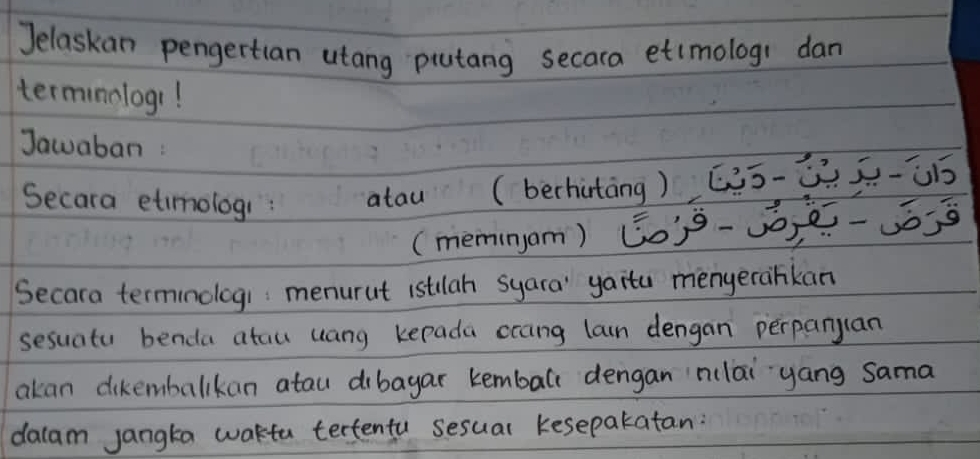 Jelaskan pengertian utang piutang secara etimologi dan
terminologi !
Jawaban :
Secara etimologi : atau ( berhutang ) دَانَ - يَدِيْنُ - دَيْنًا
( meminjam ) قَرَضَ - يَقْرِضُ - قَرْضًا
Secara terminologi : menurut istilah syara' yaitu menyerahkan
sesuatu benda atau uang kepada orang lain dengan perpanjian
akan dikembalikan atau dibayar kembali dengan nilai yang sama
dalam jangka waktu tertentu sesuai kesepakatan.